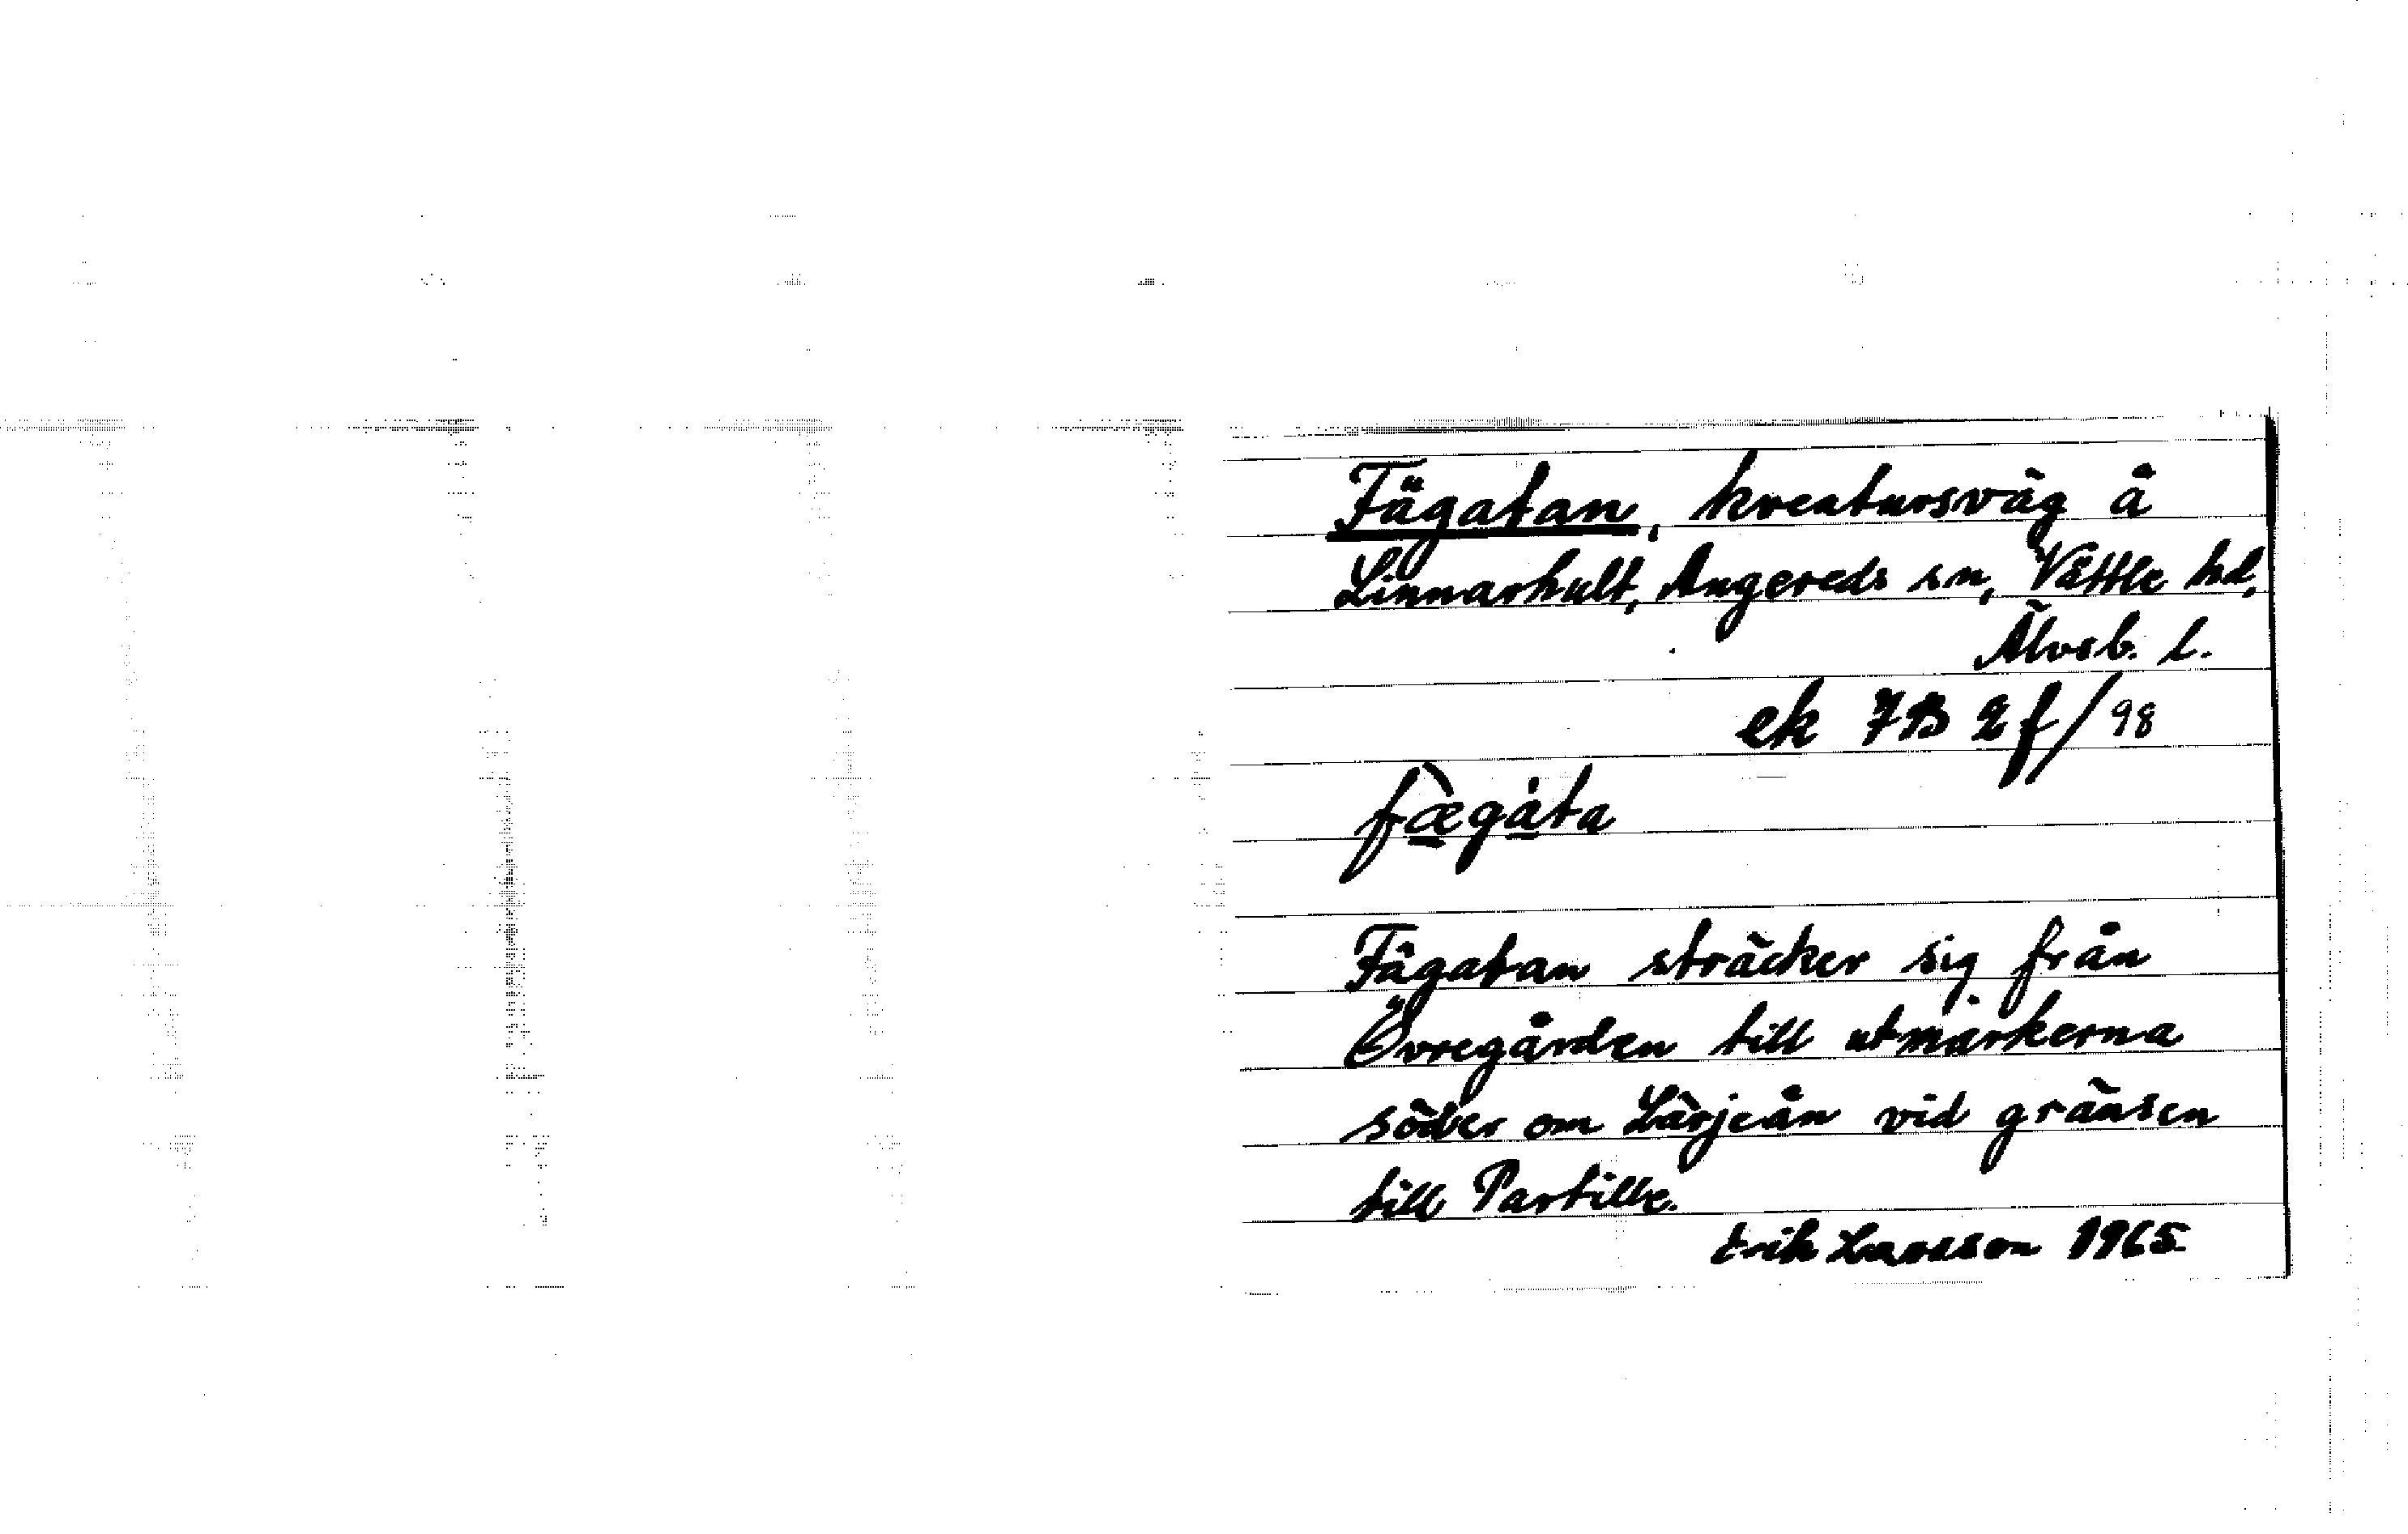 Fägatan, kreatursväg å
Linnarhult, Angereds sn, Vättle hd,
Älvsb. l.
ek 7B 2f/98
fæ̀gáta
Fägatan sträcker sig från
Övregården till utmarkerna
söder om Lärjeån vid gränsen
till Partille.
Erik Larsson 1965.